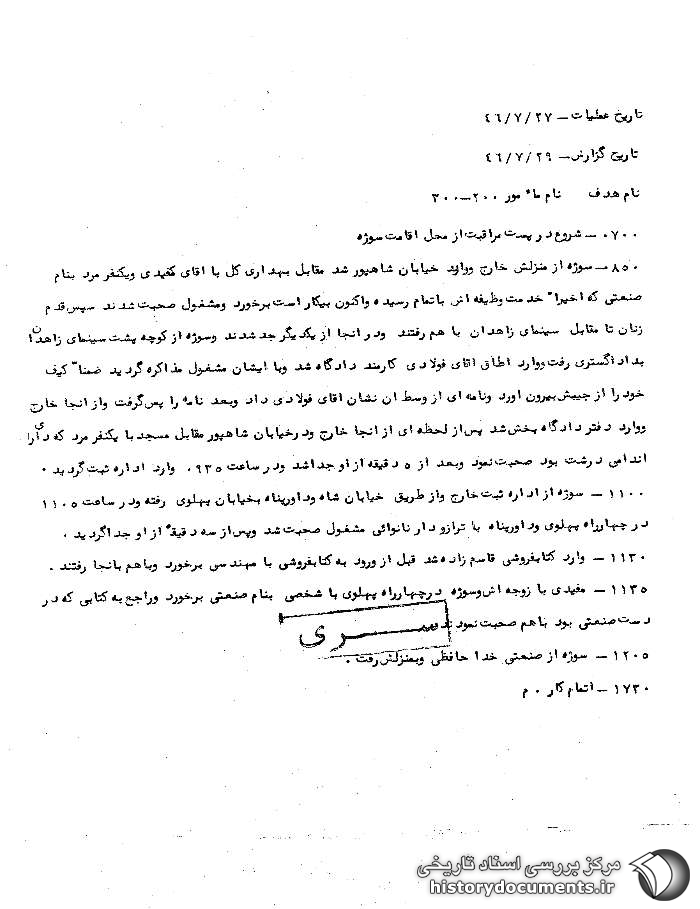 تاریخ عملیات ــ ۴۶/۷/۲۷
تاریخ گزارش ــ ۴۶/۷/۲۹
نام هدف نام مأمور ۲۰۰ــ۳۰۰
۰۷۰۰ ــ شروع در پست مراقبت از محل اقامت سوژه
۰۸۵۰ ــ سوژه از منزلش خارج ووارد خیابان شاهپور شد مقابل بهداری کل با اقای مفیدی ویکنفر مرد بنام
صنعتی که اخیراً خدمت وظیفه اش باتمام رسیده واکنون بیکار است برخورد ومشغول صحبت شدند سپس قدم
زنان تا مقابل سینمای زاهدان با هم رفتند ودر انجا از یکدیگر جدا شدند وسوژه از کوچه پشت سینمای زاهدان
بدادگستری رفت ووارد اطاق اقای فولادی کارمند دادگاه شد وبا ایشان مشغول مذاکره گردید ضمناً کیف
خود را از جیبش بیرون اورد ونامه ای از وسط ان نشان اقای فولادی داد وبعد نامه را پس گرفت واز انجا خارج
ووارد دفتر دادگاه بخش شد پس از لحظه ای از انجا خارج ودرخیابان شاهپور مقابل مسجد با یکنفر مرد که دارای
اندامی درشت بود صحبت نمود وبعد از ۵ دقیقه از او جدا شد ودر ساعت ۰۹۳۵ وارد اداره ثبت گردید ۰
۱۱۰۰ ــ سوژه از اداره ثبت خارج واز طریق خیابان شاه وداورپناه بخیابان پهلوی رفته ودر ساعت ۱۱۰۵
در چهارراه پهلوی وداورپناه با ترازودار نانوائی مشغول صحبت شد وپس از سه دقیقه از او جدا گردید ۰
۱۱۳۰ ــ وارد کتابفروشی قاسم زاده شد قبل از ورود به کتابفروشی با مهندسی برخورد وباهم بانجا رفتند ۰
۱۱۳۵ ــ مفیدی با زوجه اش وسوژه درچهارراه پهلوی با شخصی بنام صنعتی برخورد وراجع به کتابی که در
دست صنعتی بود باهم صحبت نمودند
سری
۱۲۰۵ ــ سوژه از صنعتی خدا حافظی وبمنزلش رفت ۰
۱۷۳۰ ــ اتمام کار ۰ م
مرکز بررسی اسناد تاریخی
historydocuments.ir